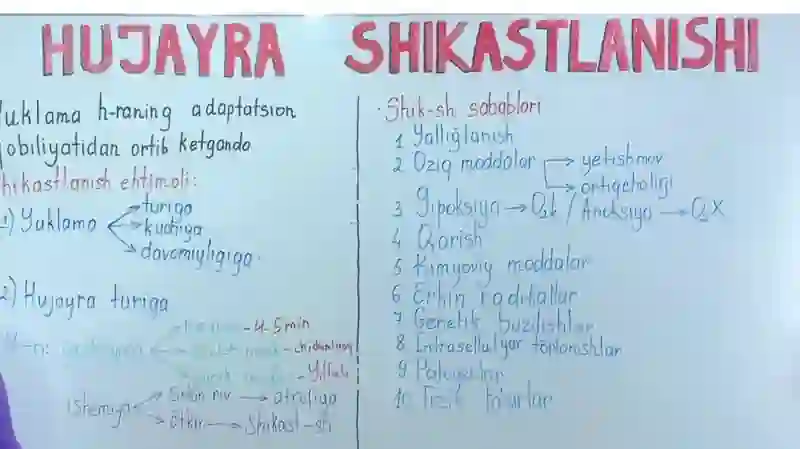 HUJAYRA SHIKASTLANISHI
uklama h-raning adaptatsion
obiliyatidan ortib ketganda
hikastlanish ehtimoli:
1) Yuklama → turiga
→ kuchiga
→ davomiyligiga.
2) Hujayra turiga
- 4-5 min
- chidamliroq
Ishemiya → Sekin riv → atrofiya
→ o'tkir → Shikast-sh
Shik-sh sabablari
1 Yallig'lanish
2 Oziq moddalar → yetishmov
→ ortiqchaligi
3 Gipoksiya → O₂↓ / Anoksiya → O₂X
4 Qarish
5 Kimyoviy moddalar
6 Erkin radikallar
7 Genetik buzilishlar
8 Intrasellulyar to'planishlar
9 Patogenlar
10 Fizik ta'sirlar